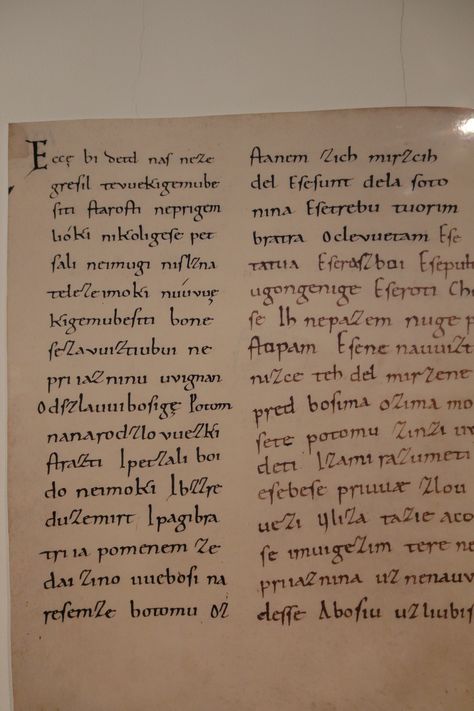 Eccę bi detd naſ neze
greſil tevuekigemube
ſiti ſtaroſti neprigem
lióki nikoligeſe pet
ſali neimugi niſlzna
teleze imoki nuúvuę
kigemubeſiti bone
ſezavuiztiubui ne
priiazninu uvignan
Odſzlauuiboſigę Potom
nanarodzlovuezki
ſtrazti Ipetzali boi
do neimoki Ibzzre
duzemirt Ipagibra
triia pomenem ze
dai zino uueboſi na
reſemze botomu oz
ſtanem zich mirzcih
del Eſeſunt dela ſoto
nina Eſetrebu tuorim
bratra Oclevuetam Eſe
tatua Eſeroszboi
ugongenige Eſeroti
ſe Ih nepazem nuge
ſtupam Eſene
nizce teh del mirzene
pred boſima ozima mo
ſete potomu zinzi
deti Izami razumeti
eſebeſe priuuæ zlou
uezi Vliza tazie aco
ſe imuigezim tere ne
priiaznina uz nenauv
deſſe Aboſiu uzliubiſ